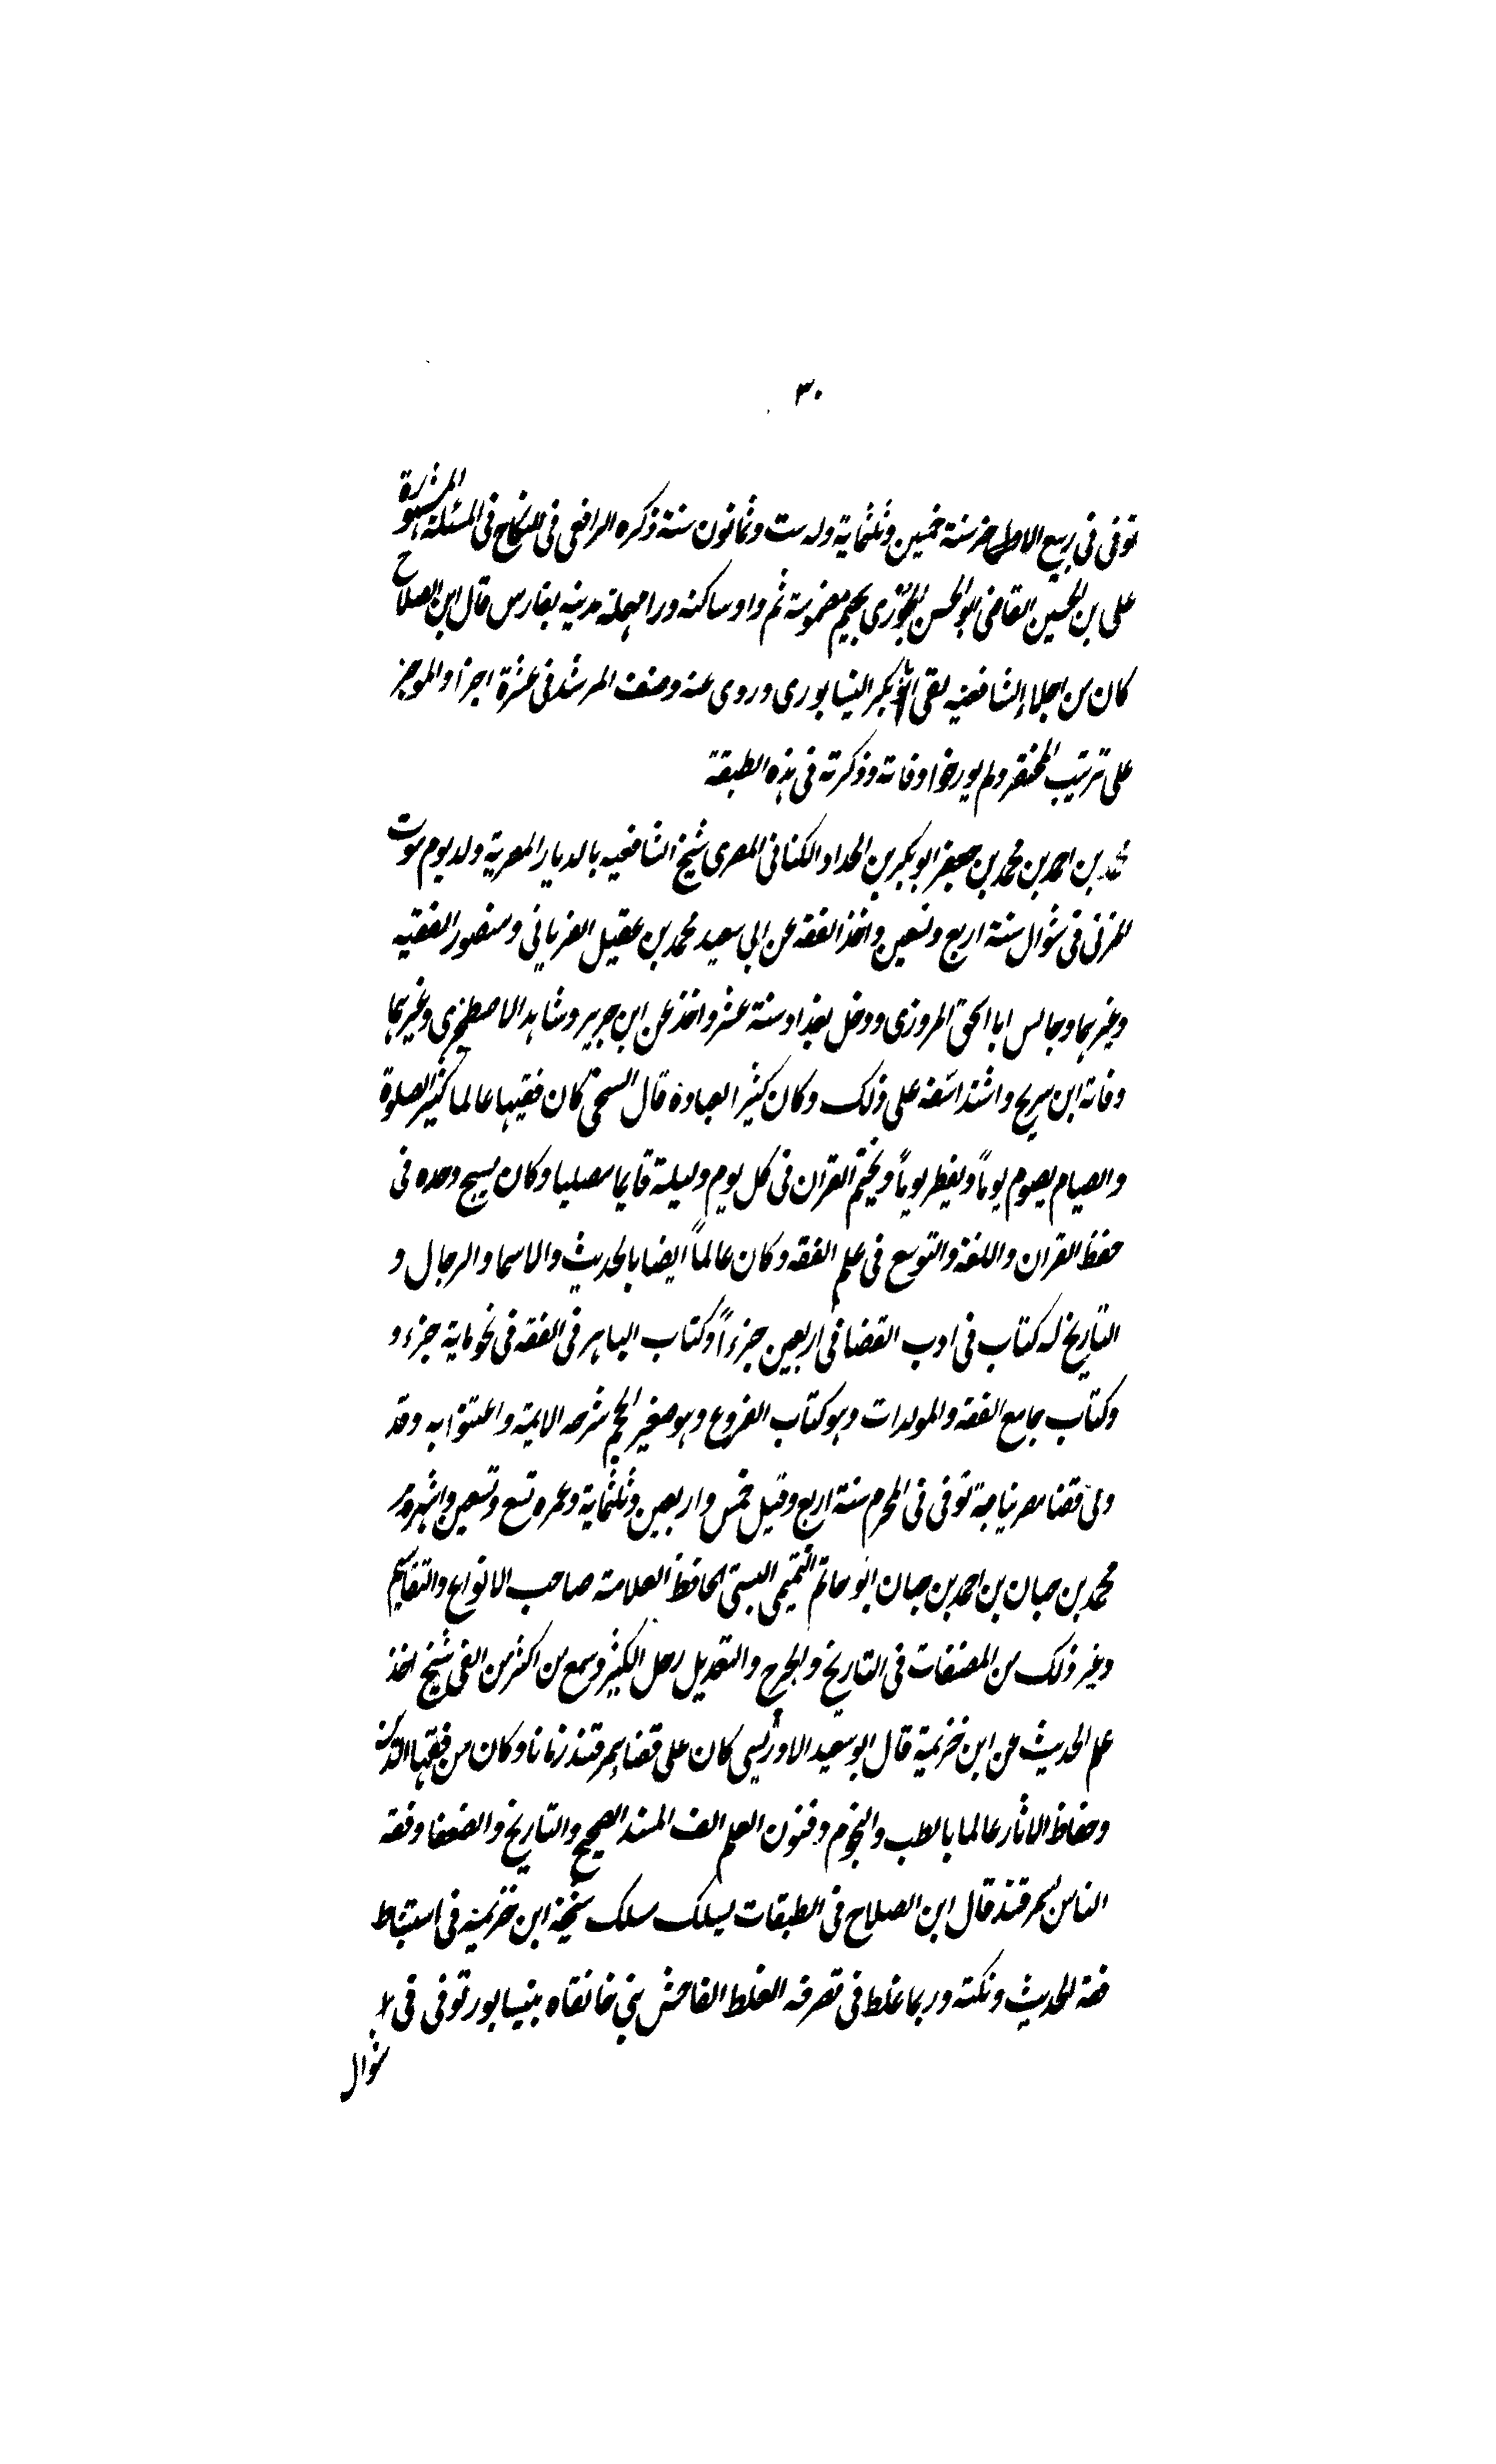 ٣٠
توفى فى ربيع الاخر سنة خمسين وثلثماية وله ست وثمانون سنة ذكره الرافعى فى النكاح فى المسئلة المشهورة
على بن الحسين القاضى ابو الحسن الجورى بجيم مضمومة ثم واو ساكنه ورا مهملة مدينة بفارس قال ابن الصلاح
كان من اجلاء الشافعيه لقى ابا بكر النيسابورى وروى عنه وصنف المرشد فى عشرة اجزا والموجز
على ترتيب المختصر ولم يورخوا وفاته وذكرته فى هذه الطبقة
محمد بن احمد بن محمد بن جعفر ابو بكر بن الحداد الكنانى المصرى شيخ الشافعيه بالديار المصرية ولد يوم موت
المزنى فى شوال سنة اربع وستين واخذ الفقه عن ابى سعيد محمد بن عقيل الفريابى ومنصور الفقيه
وغيرهما وجالس ابا اسحق المروزى ودخل بغداد سنة عشر واخذ عن ابن جرير وشاهد الاصطخرى وغيرهما
وفاته ابن سريج واشتد اسفه على ذلك وكان كثير العبادة قال المسبحى كان فقيها عالما كثير الصلوة
والصيام يصوم يوماً ويفطر يوماً ويختم القران فى كل يوم وليلة قايما مصليا وكان نسيج وحده فى
حفظ القران واللغة والتوسع فى علم الفقه وكان عالماً ايضا بالحديث والاسما والرجال و
التاريخ له كتاب فى ادب القضا فى اربعين جزءاً وكتاب الباهر فى الفقه فى نحو ماية جزء و
وكتاب جامع الفقه والمولدات وهو كتاب الفروع وهو صغير الحجم شرحه الايمة واعتنوا به وقد
ولى قضا مصر نيابة توفى فى المحرم سنة اربع وقيل خمس واربعين وثلثماية وعمره تسع وسبعين واشهر
محمد بن حبان بن احمد بن حبان ابو حاتم التميمى البستى الحافظ العلامة صاحب الانواع والتقاسيم
وغير ذلك من المصنفات فى التاريخ والجرح والتعديل رحل الكثير وسمع من اكثر من الفى شيخ اخذ
علم الحديث عن ابن خزيمة قال ابو سعيد الادريسى كان على قضا سمرقند زمانا وكان من فقها الدين
وحفاظ الاثار عالما بالطب والنجوم وفنون العلم الف المسند الصحيح والتاريخ والضعفا وفقه
الناس بسمرقند قال ابن الصلاح فى الطبقات يسلك مسلك شيخه ابن خزيمة فى استنباط
فقه الحديث ونكته وربما غلط فى تصرفه الغلط الفاحش بنى خانقاه بنيسابور توفى فى
شوال